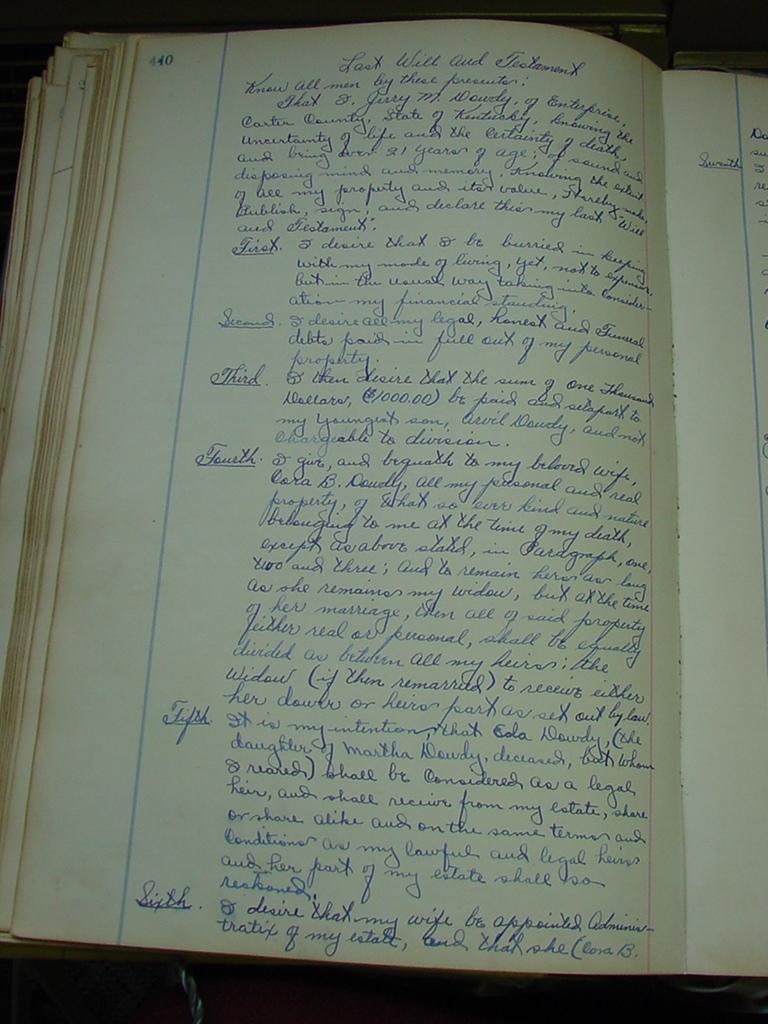 440
Last Will and Testament
Know all men by these presents;
That I, Jerry M. Dowdy, of Enterprise,
Carter County, State of Kentucky, knowing the
uncertainty of life and the certainty of death,
and being over 21 years of age; of sound and
disposing mind and memory, knowing the extent
of all my property and its value, Hereby make,
Publish, sign, and declare this my last "Will
and Testament".
First. I desire that I be burried in keeping
with my mode of living, yet, not to expensive,
but in the usual way taking into consider-
ation my financial standing.
Second. I desire all my legal, honest and Funeral
debts paid in full out of my personal
property.
Third. I then desire that the sum of one Thousand
Dollars, ($1000.00) be paid and setapart to
my youngest son, Arvil Dowdy, and not
Chargeable to division.
Fourth. I give, and bequath to my beloved wife,
Cora B. Dowdy, all my personal and real
property, of what so ever kind and nature
belonging to me at the time of my death,
except as above stated, in Paragraph, one,
two and three; and to remain hers as long
as she remains my widow, but at the time
of her marriage, then all of said property
either real or personal, shall be equally
divided as between all my heirs; the
Widow (if then remarried) to receive either
her dower or heirs part as set out by law.
Fifth. It is my intention, that Eda Dowdy, (the
daughter of Martha Dowdy, deceased, but whom
I reared) shall be Considered as a legal
heir, and shall receive from my estate, share
or share alike and on the same terms and
Conditions as my lawful and legal heirs
and her part of my estate shall so
reckoned.
Sixth. I desire that my wife be appointed Adminis-
tratix of my estate, and that she (Cora B.
Seventh